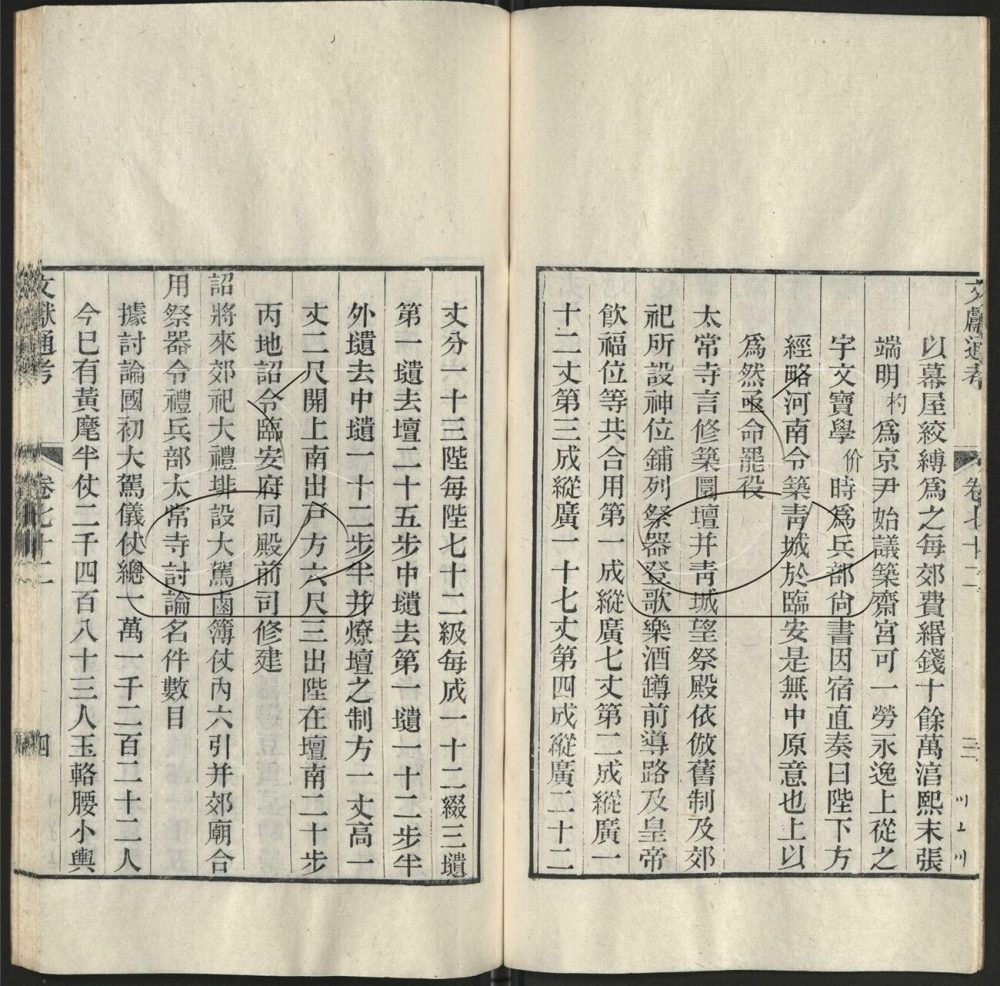 文獻通考 卷七十二
以幕屋絞縛爲之每郊費緡錢十餘萬淳熙末張
端明杓爲京尹始議築齋宮可一勞永逸上從之
宇文寶學价時爲兵部尙書因宿直奏曰陛下方
經略河南令築靑城於臨安是無中原意也上以
爲然亟命罷役
太常寺言修築圜壇并靑城望祭殿依倣舊制及郊
祀所設神位鋪列祭器登歌樂酒罇前導路及皇帝
飮福位等共合用第一成縱廣七丈第二成縱廣一
十二丈第三成縱廣一十七丈第四成縱廣二十二
丈分一十三陛每陛七十二級每成一十二綴三壝
第一壝去壇二十五步中壝去第一壝一十二步半
外壝去中壝一十二步半并燎壇之制方一丈高一
丈二尺開上南出戸方六尺三出陛在壇南二十步
丙地詔令臨安府同殿前司修建
詔將來郊祀大禮排設大駕鹵簿仗內六引并郊廟合
用祭器令禮兵部太常寺討論名件數目
據討論國初大駕儀仗總一萬一千二百二十二人
今已有黃麾半仗二千四百八十三人玉輅腰小輿
文獻通考 卷七十二 四